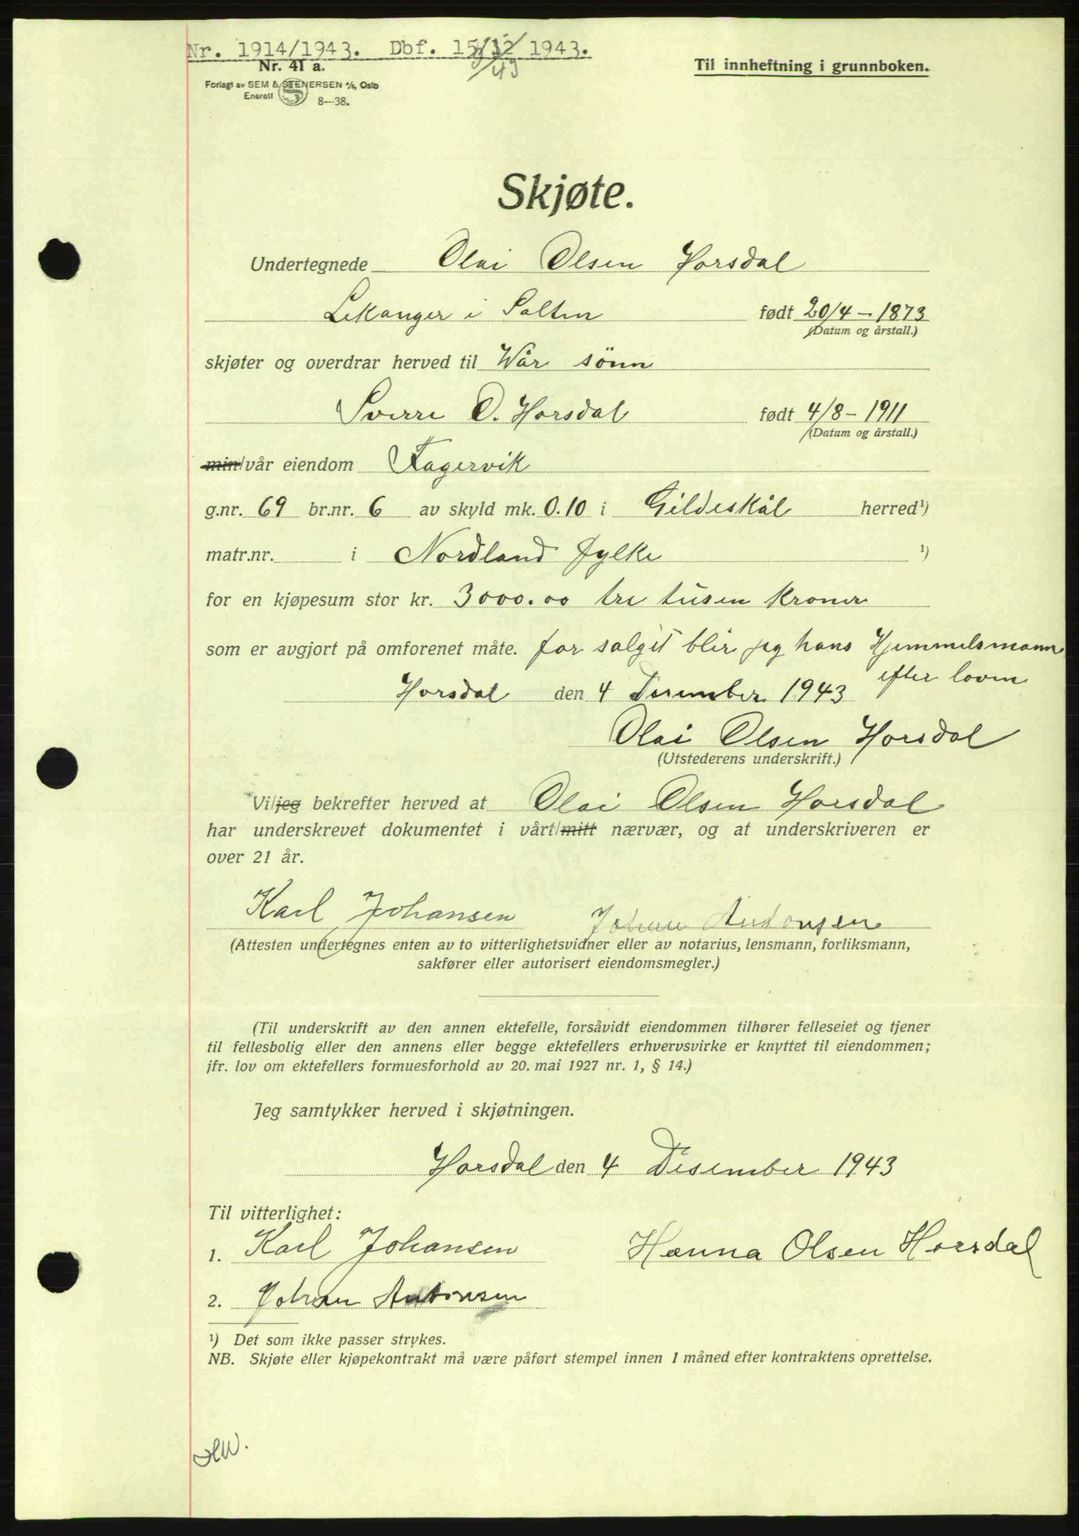 Nr. 1914/1943. Dbf. 15/12 1943.
Nr. 41 a.
Til innheftning i grunnboken.
Forlagt av SEM & STENERSEN A/S, Oslo
Enerett
8—38.
Skjøte.
Undertegnede Olai Olsen Horsdal
Lekanger i Salten født 20/4 - 1873
(Datum og årstall.)
skjøter og overdrar herved til Wår sönn
Sverre O. Horsdal født 4/8 - 1911
(Datum og årstall.)
min/vår eiendom Fagervik
g.nr. 69 br.nr. 6 av skyld mk. 0.10 i Gildeskål herred¹)
matr.nr. i Nordland fylke ¹)
for en kjøpesum stor kr. 3000.00 tre tusen kroner
som er avgjort på omforenet måte. for salget blir jeg hans Hjemmelsmann
efter loven
Horsdal den 4 Desember 1943
Olai Olsen Horsdal
(Utstederens underskrift.)
Vi/jeg bekrefter herved at Olai Olsen Horsdal
har underskrevet dokumentet i vårt/mitt nærvær, og at underskriveren er
over 21 år.
Karl Johansen Johan Antonsen
(Attesten undertegnes enten av to vitterlighetsvidner eller av notarius, lensmann, forliksmann,
sakfører eller autorisert eiendomsmegler.)
(Til underskrift av den annen ektefelle, forsåvidt eiendommen tilhører felleseiet og tjener
til fellesbolig eller den annens eller begge ektefellers erhvervsvirke er knyttet til eiendommen;
jfr. lov om ektefellers formuesforhold av 20. mai 1927 nr. 1, § 14.)
Jeg samtykker herved i skjøtningen.
Horsdal den 4 Desember 1943
Til vitterlighet:
1. Karl Johansen Hanna Olsen Horsdal
2. Johan Antonsen
¹) Det som ikke passer strykes.
NB. Skjøte eller kjøpekontrakt må være påført stempel innen 1 måned efter kontraktens oprettelse.
HW.